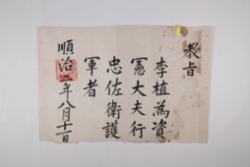 教旨
李植為資
憲大夫行
忠佐衛護
軍者
順治二年八月十一日